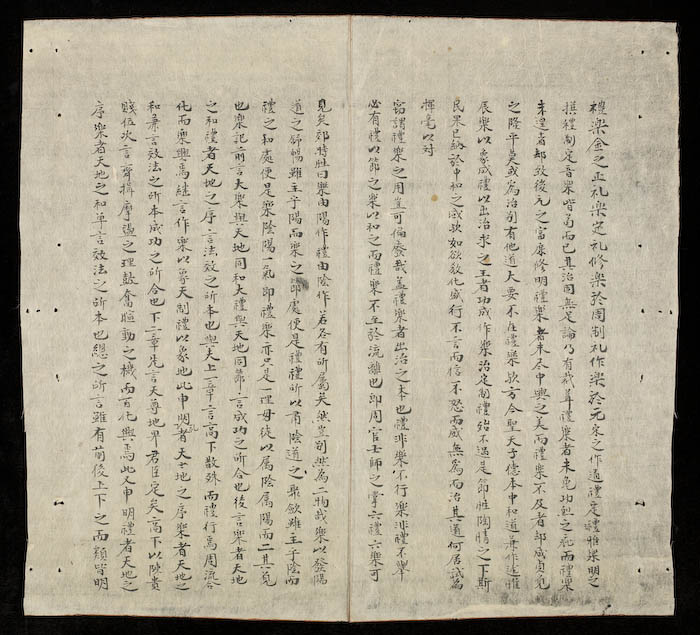 禮樂金之正礼樂芝礼修樂於周制礼作樂於元宋之作通禮是禮雅樂明之
撰禮制定吾樂皆苟而已其治固無足論乃有哉尊禮樂者未免功烈之卑而禮樂
未遑者却致後元之富庶修明禮樂者未尽中興之美而禮樂不及者却咸貞覌
之隆平莫或為治別有他道大要不在禮樂欤方今聖天子德本中和道兼作述惟
辰樂以象成禮以出治求之王者功成作樂治定制禮殆不過是節性陶情之下斯
民果已納於中和之域欤如欲教化盛行不言而信不怒而威無為而治其道何居試為
揮毫以对
竊謂禮樂之用豈可偏廢哉盖禮樂者出治之本也禮非樂不行樂非禮不舉
必有禮以節之樂以和之而禮樂不至於流離也即周官士師之掌六禮六樂可
見矣郊特牲曰樂由陽作禮由陰作若各有所屬矣然豈別然為二物哉樂以發陽
道之舒暢雖主乎陽而樂之節處便是禮禮所以肅陰道之聚歛雖主乎陰而
禮之和處便是樂陰陽一氣即禮樂亦只是一理毋徒以属陰属陽而二其覌
也樂記前言大樂與天地同和大禮與天地同節言成功之所合也後言樂者天地
之和禮者天地之序言法效之所本也與夫上一章言高下散殊而禮行焉周流合
化而樂興焉継言作樂以象天制禮以象地此申明礼者天地之序樂者天地之
和兼言效法之所本成功之所合也下一章先言天尊地卑君臣定矣高下以陳貴
賤位次言聲搆摩盪之理鼓奮暄動之機而百化興焉此又申明禮者天地之
序樂者天地之和單言效法之所本也總之所言雖有前後上下之而顯皆明